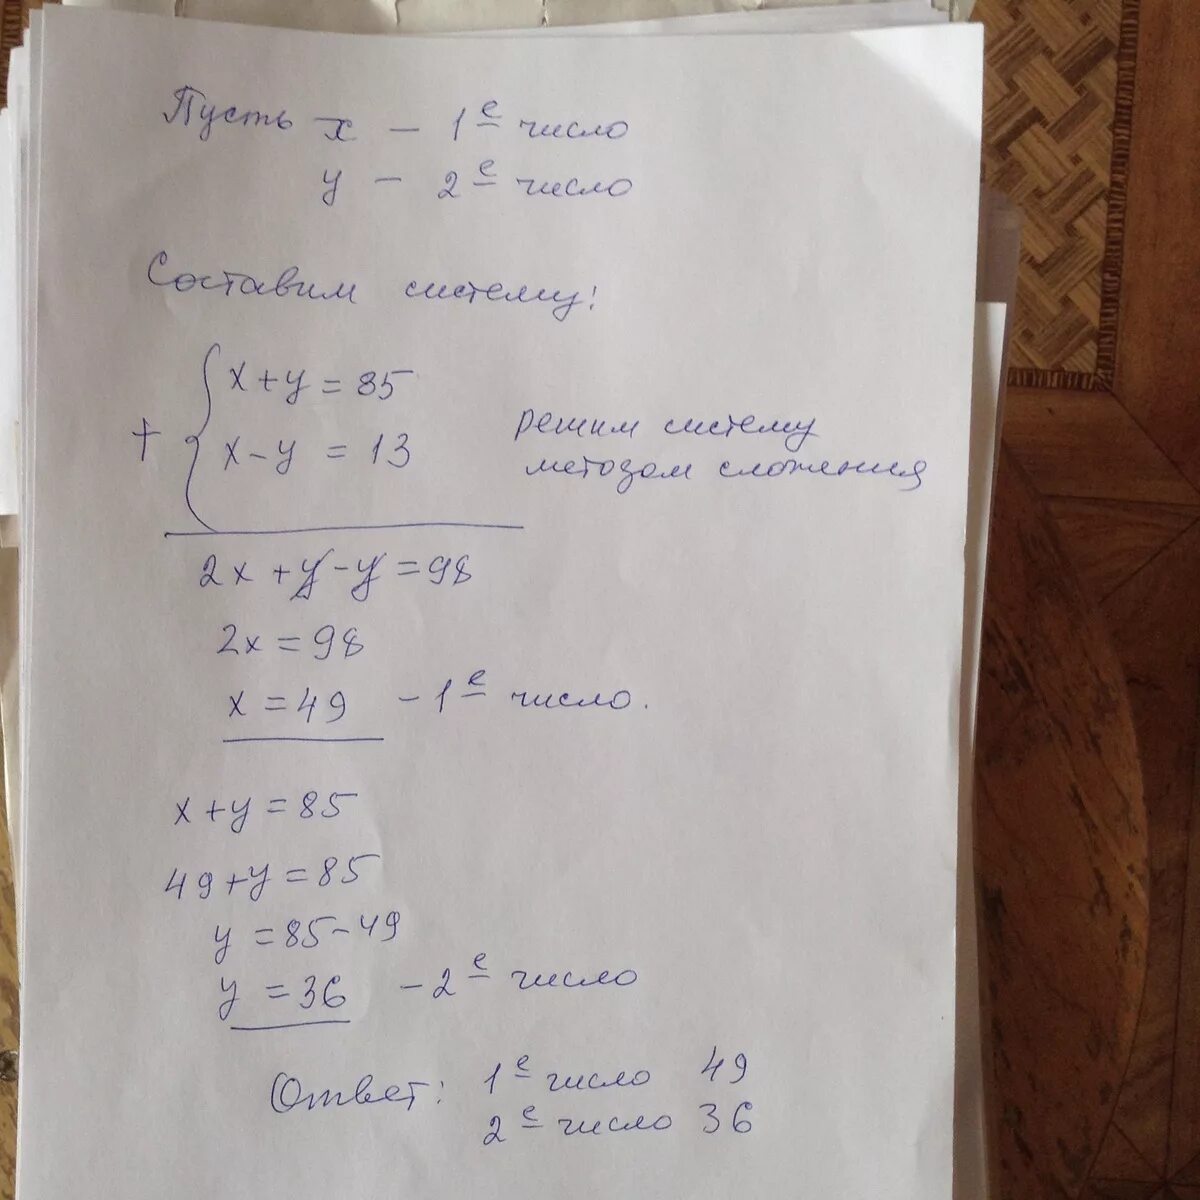 Пусть x – 1е число
y – 2е число
Составим систему:
+ { x+y=85
x-y=13
решим систему
методом сложения
2x+y-y=98
2x=98
x=49 – 1е число.
x+y=85
49+y=85
y=85-49
y=36 – 2е число
Ответ: 1е число 49
2е число 36